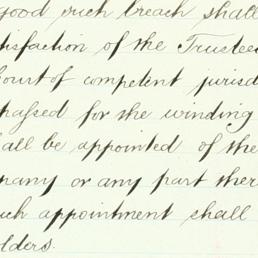 good such breach shall
tisfaction of the Trustee
Court of competent jurisd
passed for the winding
all be appointed of the
pany or any part ther
uch appointment shall
olders.